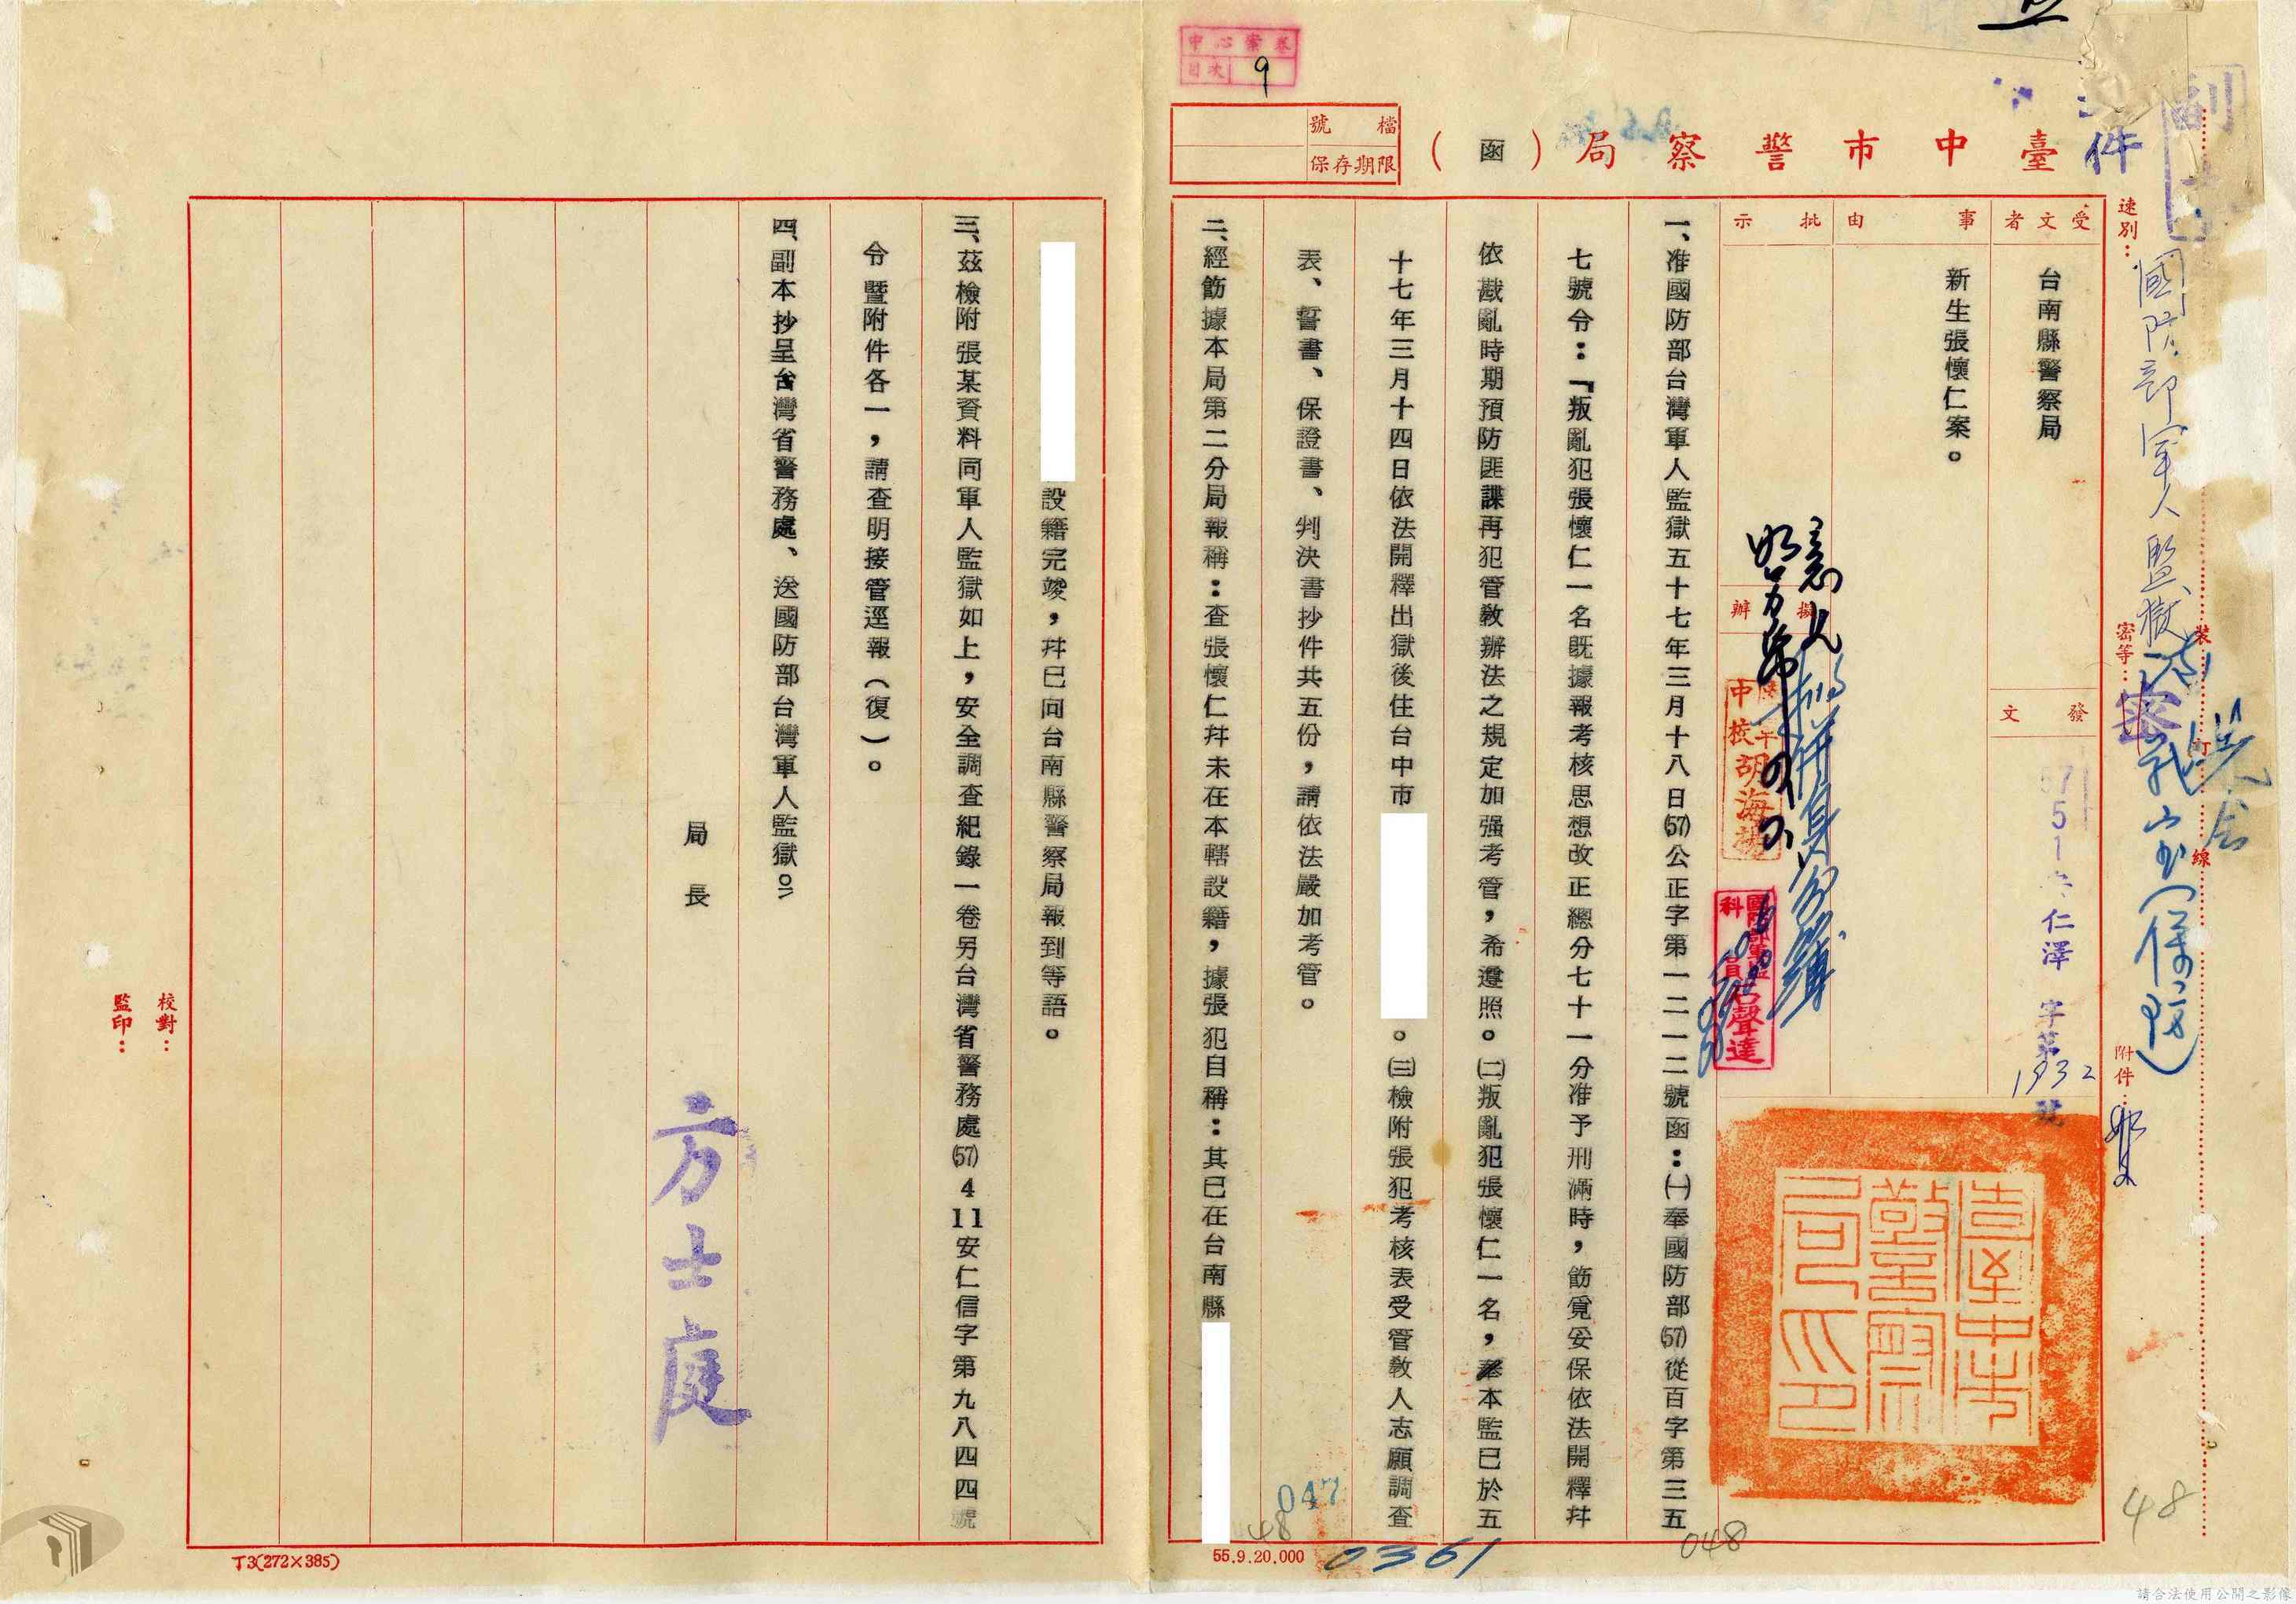 中心案卷
目次 9
檔號
保存期限
臺中市警察局（函）
副
件
速別：
國防部軍人監獄
密等：
密
裝
訂
線
附件：
受文者
台南縣警察局
發文
57 5 1
仁澤
字第
1932
號
事由
新生張懷仁案。
批示
擬辦
中校胡海
科員石聲達
臺中市警察局印
一、准國防部台灣軍人監獄五十七年三月十八日(57)公正字第一二一二號函：㈠奉國防部(57)從百字第三五
七號令：「叛亂犯張懷仁一名既據報考核思想改正總分七十一分准予刑滿時，飭覓妥保依法開釋幷
依戡亂時期預防匪諜再犯管教辦法之規定加强考管，希遵照。㈡叛亂犯張懷仁一名，本監已於五
十七年三月十四日依法開釋出獄後住台中市
。㈢檢附張犯考核表受管教人志願調查
表、誓書、保證書、判決書抄件共五份，請依法嚴加考管。
二、經飭據本局第二分局報稱：查張懷仁幷未在本轄設籍，據張犯自稱：其已在台南縣
設籍完竣，幷已向台南縣警察局報到等語。
三、茲檢附張某資料同軍人監獄如上，安全調查紀錄一卷另台灣省警務處(57)411安仁信字第九八四四號
令暨附件各一，請查明接管逕報（復）。
四、副本抄呈台灣省警務處、送國防部台灣軍人監獄。
局長
方士庭
校對：
監印：
047
48
048
48
0361
55.9.20,000
T3(272×385)
請合法使用公開之影像